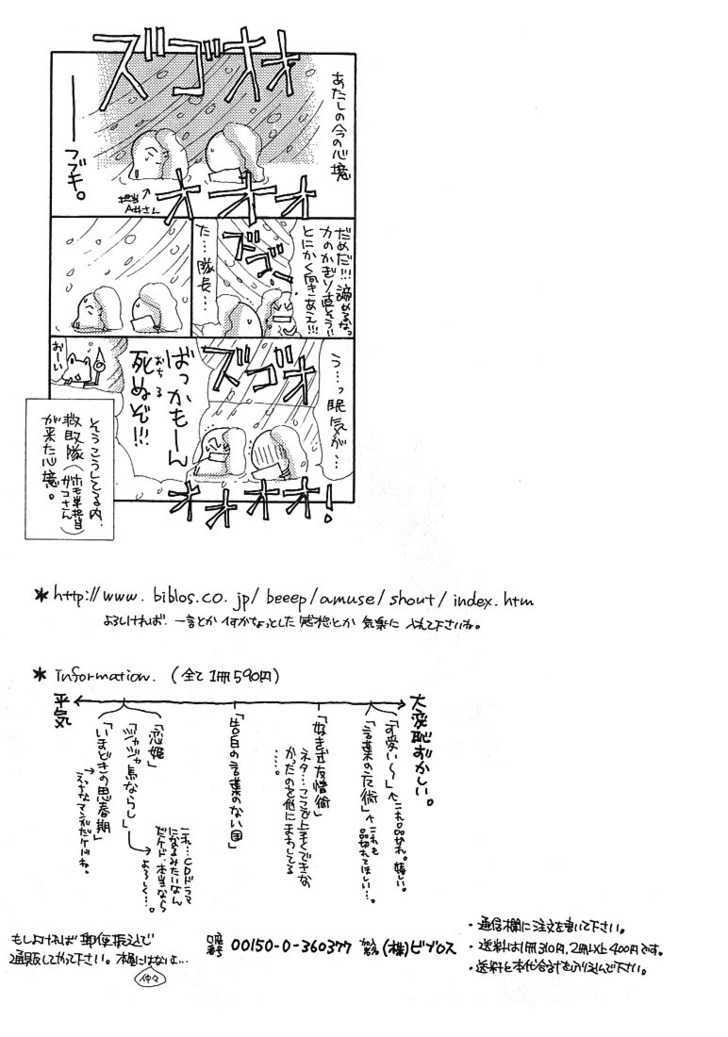 あたしの今の心境
ズゴオォ
――ブブキ。
担当
A井さん
オオォ
だめだ!!!諦めるなっ
力のかぎり漕そう!!
とにかく向きあえ!!!
ズゴゴ
た…隊長…
う…っ眠気が…
ズゴオ
ばっかもーん
おちる
死ぬぞ!!!
オォオオオ!
おーい
そうこうしてる内、
救助隊(
ガコさん)
が来た心境。
*http://www.biblos.co.jp/beeep/amuse/shout/index.htm
よろしければ、一言とか何かちょっとした感想とか気楽に入れて下さいね。
*Information.(全て1冊590円)
大変恥ずかしい。
「可愛い〜」←これ品切れ。嬉しい。
「言葉の応術」←これも
品切れてほしい…。
「好き式友情術」
ネタ…ここが上手くできな
かったのを他にまわしてる
……。
「告白の言葉のない国」
「恋姫」
「ジャジャ馬ならし」
→これ…CDドラマ
になるみたいなん
だケド、本当なら
よろしく…。
「いまどきの思春期」
→えっちなマンガだケドね。
平気
もしよければ郵便振込で
通販してやって下さい。本屋にはないよ…
仲々
口座
番号 00150-0-360377 加入
者名 (株)ビブロス
・通信欄に注文を書いて下さい。
・送料は1冊310円、2冊以上400円です。
・送料と本代合計をふりこんで下さい。